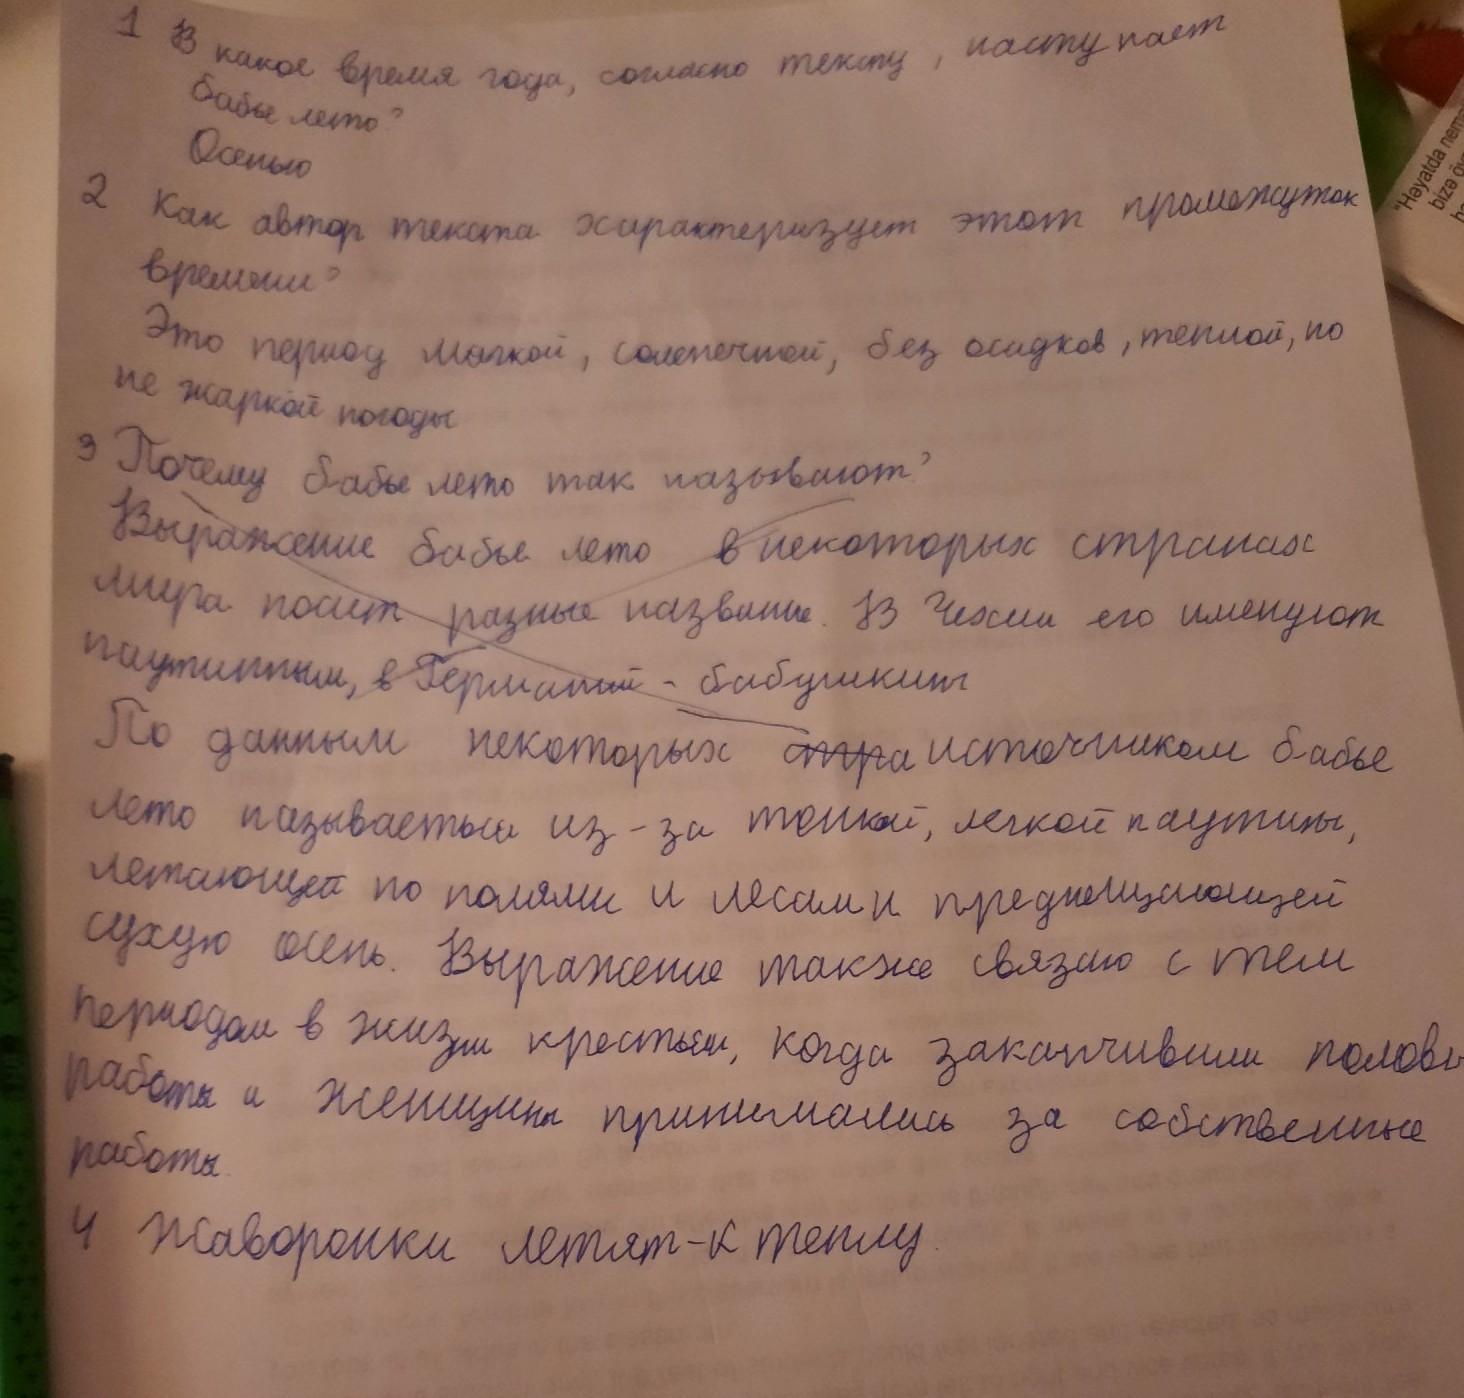 1 В какое время года, согласно тексту, наступает
бабье лето?
Осенью
2 Как автор текста характеризует этот промежуток
времени?
Это период мягкой, солнечной, без осадков, теплой, но
не жаркой погоды
3 Почему бабье лето так называют?
Выражение бабье лето в некоторых странах
мира носит разные название. В Чехии его именуют
паутинным, в Германий - бабушкины
По данным некоторых стра источником бабье
лето называеться из-за тонкой, легкой паутины,
летающей по полями и лесами предвещающей
сухую осень. Выражение также связано с тем
периодом в жизни крестьян, когда заканчивали
работы и женщины принимались за собственные
работы.
4 Жаворонки летят-к теплу.
"Həyatda
bizə